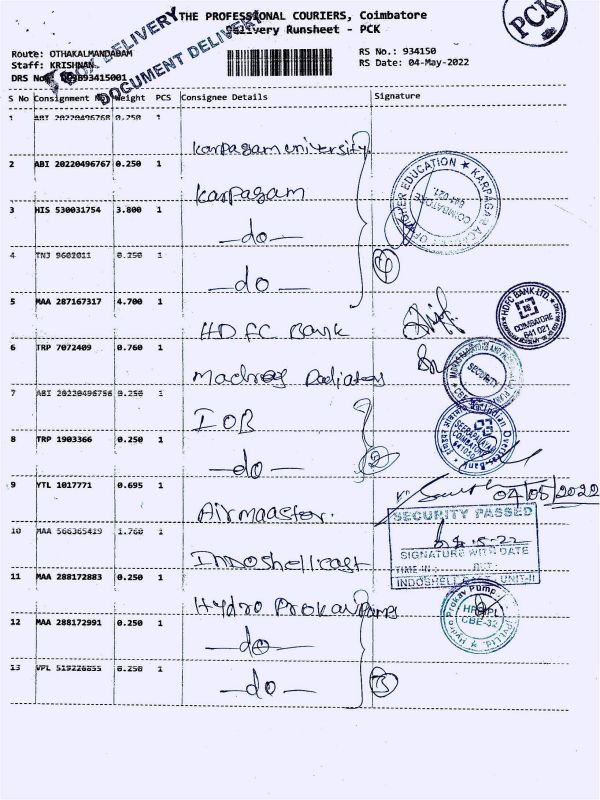 THE PROFESSIONAL COURIERS, Coimbatore
Delivery Runsheet - PCK
PCK
BOX DELIVERY
DOCUMENT DELIVERY
Route: OTHAKALMANDABAM
Staff: KRISHNAN
DRS No.
RS No.: 934150
RS Date: 04-May-2022
S No Consignment No Weight PCS Consignee Details Signature
1 ABI 20220496768 0.250 1 Karpagam university
2 ABI 20220496767 0.250 1 Karpagam
3 HIS 530031754 3.800 1 —do—
4 TNJ 9602011 0.250 1 —do—
4
KARPAGAM ACADEMY OF HIGHER EDUCATION
COIMBATORE
641 021
5 MAA 287167317 4.700 1 HDFC Bank
HDFC BANK LTD.
COIMBATORE
641 021
6 TRP 7072409 0.760 1 Madras Radiators
SECURITY
7 ABI 20220496756 0.250 1 IOB
8 TRP 1903366 0.250 1 —do—
2
Indian Overseas Bank
9 YTL 1017771 0.695 1 Airmaaster.
04/05/2022
SECURITY PASSED
SIGNATURE WITH DATE
TIME-IN: OUT:
INDOSHELL CAST UNIT-II
10 MAA 566365419 1.760 1 Indoshellcast
11 MAA 288172883 0.250 1 Hydro Prokav Pumps
12 MAA 288172991 0.250 1 —do—
13 VPL 519226855 0.250 1 —do—
3
Hydro Prokav Pumps
CBE-32